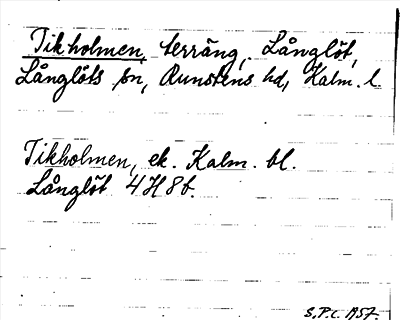 Tikholmen, terräng, Långlöt,
Långlöts sn, Runstens hd, Kalm. l.
Tikholmen, ek. Kalm. bl.
Långlöt 4H8b.
S.P.C. 1957.